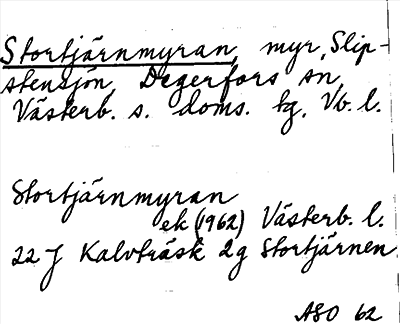 Stortjärnmyran, myr, Slip-
stensjön, Degerfors sn,
Västerb. s. doms. tg, Vb. l.
Stortjärnmyran
ek (1962) Västerb. l.
22 J Kalvträsk 2g Stortjärnen
ASO 62